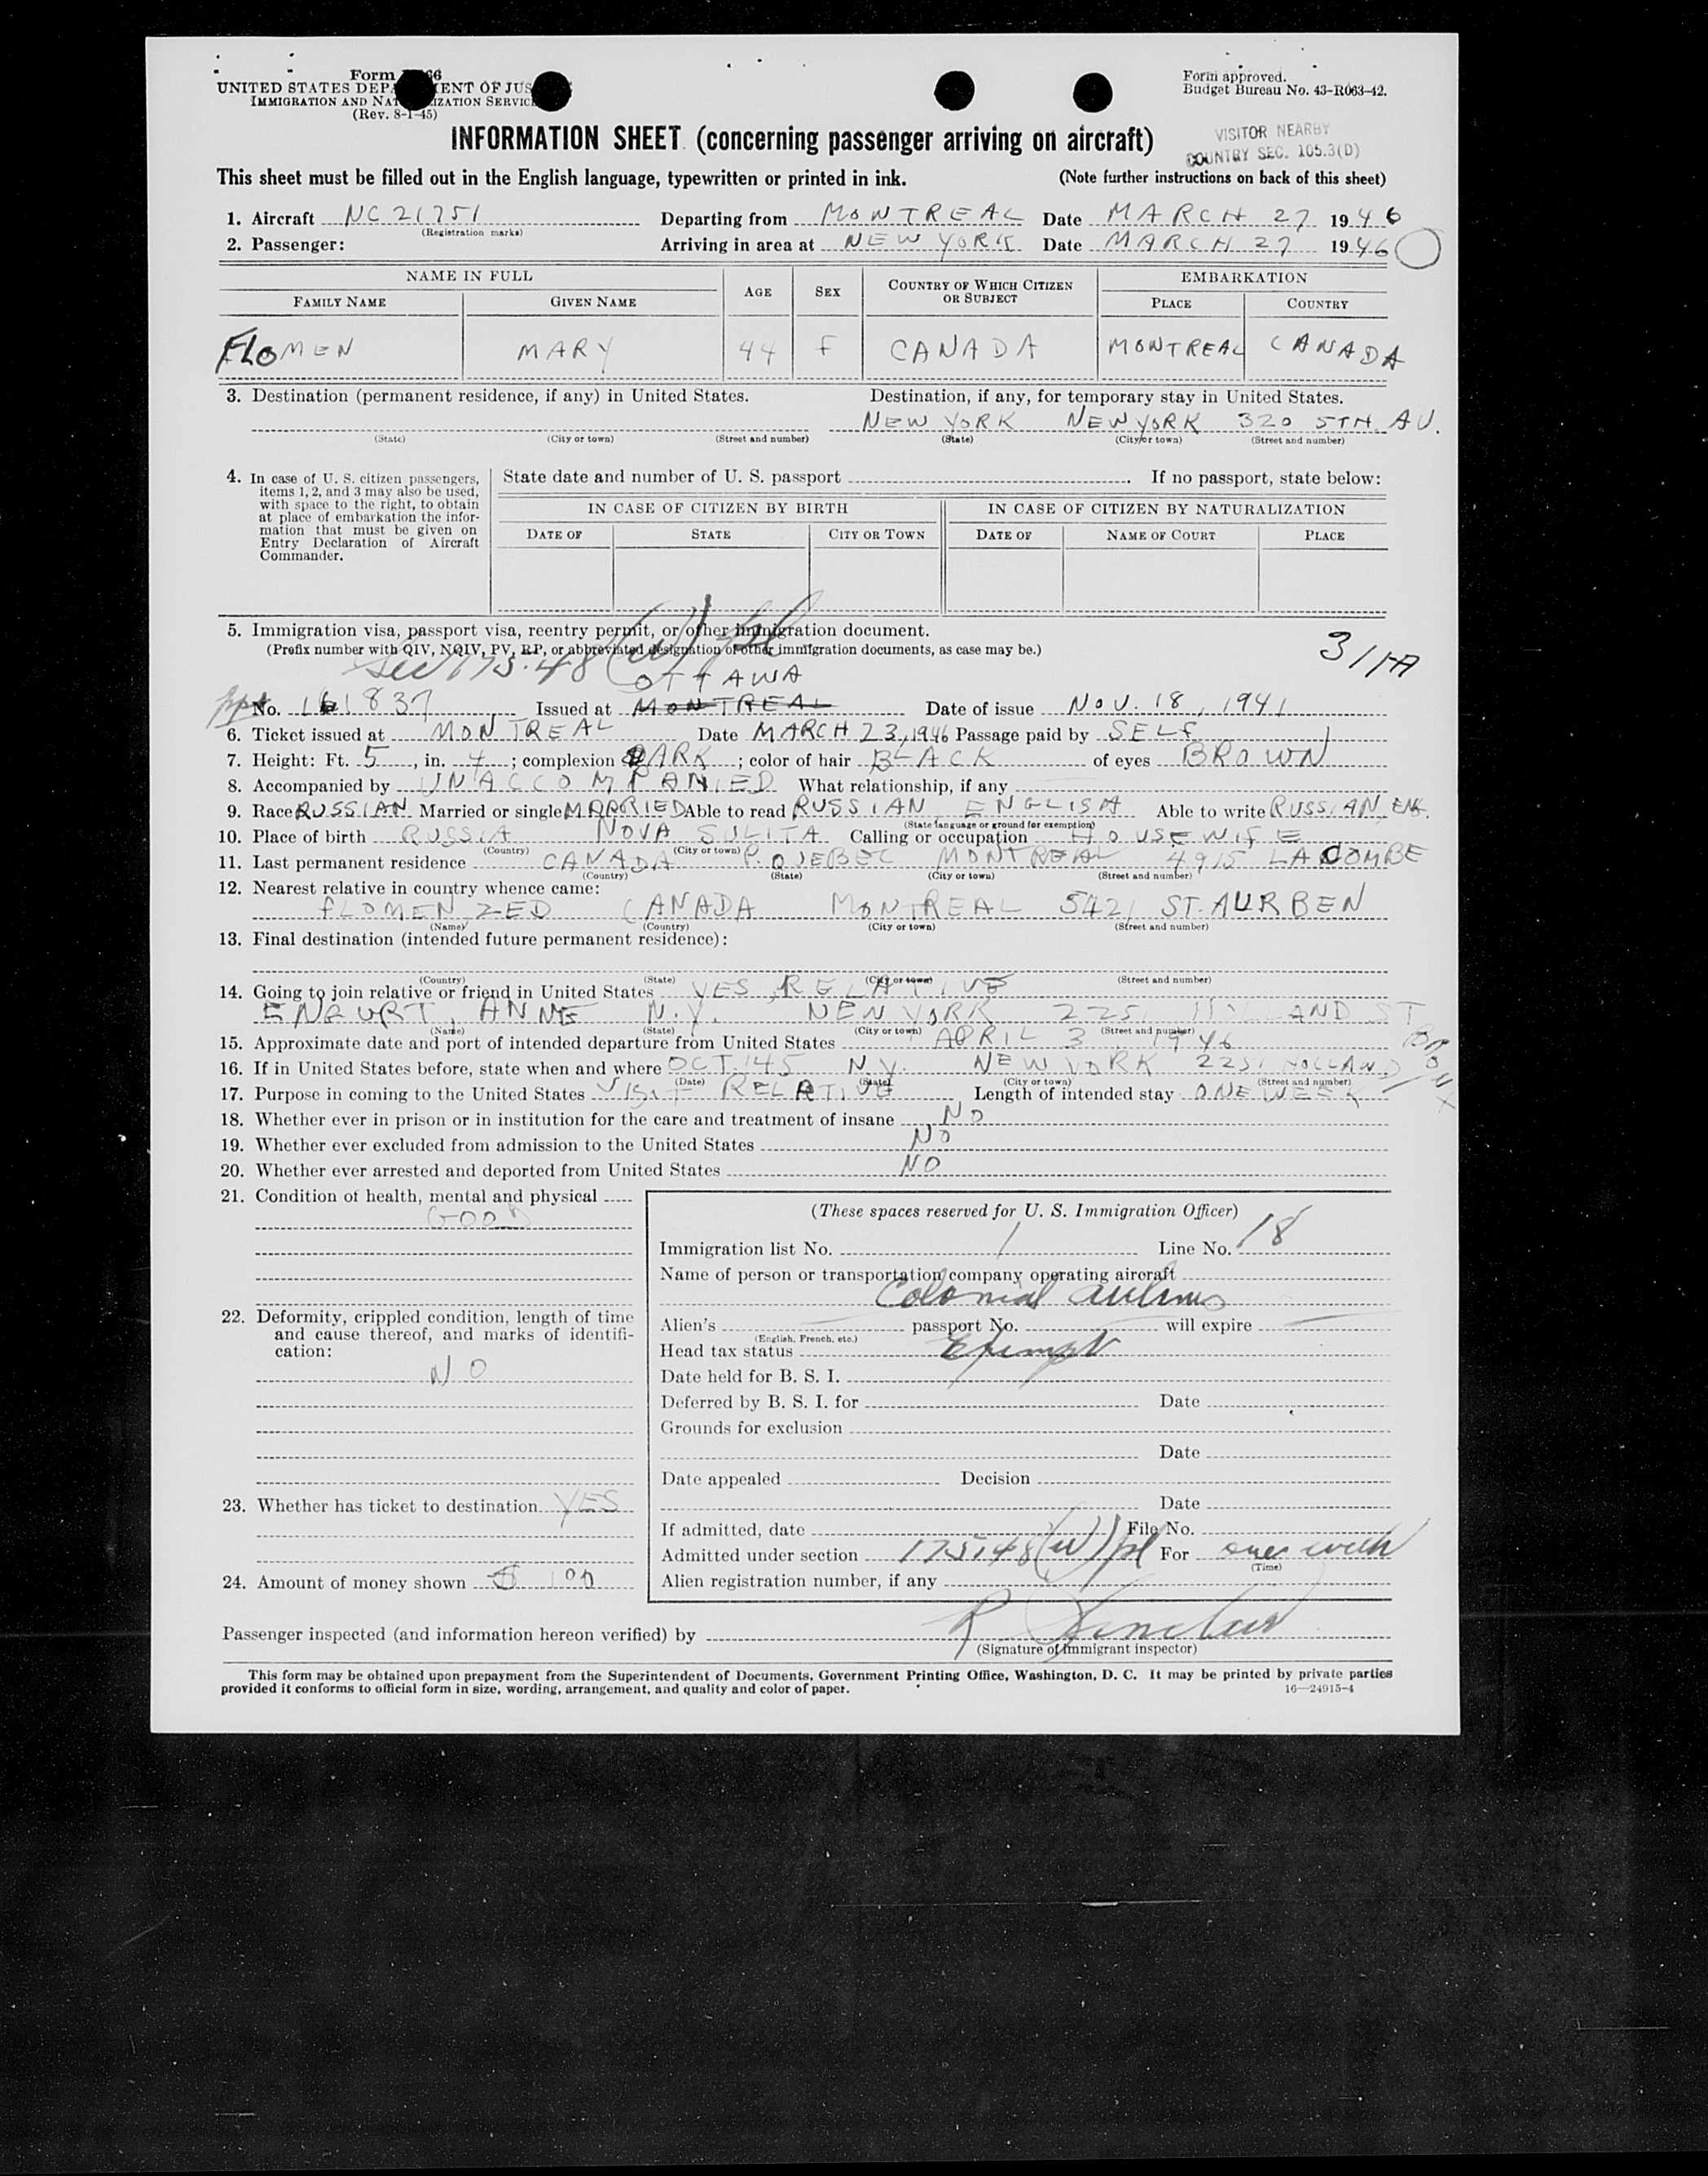 Form 66
UNITED STATES DEPA ENT OF JUS
IMMIGRATION AND NAT IZATION SERVIC
(Rev. 8-1-45)
Form approved.
Budget Bureau No. 43-R063-42.
INFORMATION SHEET (concerning passenger arriving on aircraft)
VISITOR NEARBY
COUNTRY SEC. 105.3(D)
This sheet must be filled out in the English language, typewritten or printed in ink. (Note further instructions on back of this sheet)
1. Aircraft NC 21751 Departing from MONTREAL Date MARCH 27 1946
(Registration marks)
2. Passenger: Arriving in area at NEW YORK Date MARCH 27 1946
NAME IN FULL AGE SEX COUNTRY OF WHICH CITIZEN OR SUBJECT EMBARKATION
FAMILY NAME GIVEN NAME PLACE COUNTRY
FLOMEN MARY 44 F CANADA MONTREAL CANADA
3. Destination (permanent residence, if any) in United States. Destination, if any, for temporary stay in United States.
NEW YORK NEW YORK 320 5TH. AV.
(State) (City or town) (Street and number) (State) (City or town) (Street and number)
4. In case of U. S. citizen passengers, items 1, 2, and 3 may also be used, with space to the right, to obtain at place of embarkation the information that must be given on Entry Declaration of Aircraft Commander.
State date and number of U. S. passport . If no passport, state below:
IN CASE OF CITIZEN BY BIRTH IN CASE OF CITIZEN BY NATURALIZATION
DATE OF STATE CITY OR TOWN DATE OF NAME OF COURT PLACE
5. Immigration visa, passport visa, reentry permit, or other immigration document.
(Prefix number with QIV, NQIV, PV, RP, or abbreviated designation of other immigration documents, as case may be.)
Sec 175.48 (w)
OTTAWA
No. 161837 Issued at MONTREAL Date of issue NOV. 18, 1941
6. Ticket issued at MONTREAL Date MARCH 23, 1946 Passage paid by SELF
7. Height: Ft. 5, in. 4; complexion DARK; color of hair BLACK of eyes BROWN
8. Accompanied by UNACCOMPANIED What relationship, if any
9. Race RUSSIAN Married or single MARRIED Able to read RUSSIAN, ENGLISH Able to write RUSSIAN, ENG.
(State language or ground for exemption)
10. Place of birth RUSSIA NOVA SULITA Calling or occupation HOUSEWIFE
(Country) (City or town)
11. Last permanent residence CANADA P. QUEBEC MONTREAL 4915 LACOMBE
(Country) (State) (City or town) (Street and number)
12. Nearest relative in country whence came:
FLOMEN ZED CANADA MONTREAL 5421 ST. AURBEN
(Name) (Country) (City or town) (Street and number)
13. Final destination (intended future permanent residence):
(Country) (State) (City or town) (Street and number)
14. Going to join relative or friend in United States YES, RELATIVE
ANNE N.Y. NEW YORK 2251 ST
(Name) (State) (City or town) (Street and number)
BRONX
15. Approximate date and port of intended departure from United States APRIL 3 1946
16. If in United States before, state when and where OCT. 145 N.Y. NEW YORK 2251 HOLLAND
(Date) (State) (City or town) (Street and number)
17. Purpose in coming to the United States VISIT RELATIVE Length of intended stay ONE WEEK
18. Whether ever in prison or in institution for the care and treatment of insane NO
19. Whether ever excluded from admission to the United States NO
20. Whether ever arrested and deported from United States NO
21. Condition of health, mental and physical
GOOD
22. Deformity, crippled condition, length of time and cause thereof, and marks of identification:
NO
23. Whether has ticket to destination YES
24. Amount of money shown $ 100
(These spaces reserved for U. S. Immigration Officer)
Immigration list No. 1 Line No. 18
Name of person or transportation company operating aircraft
Colonial Airlines
Alien's passport No. will expire
(English, French, etc.)
Head tax status Exempt
Date held for B. S. I.
Deferred by B. S. I. for Date
Grounds for exclusion
Date
Date appealed Decision
Date
If admitted, date File No.
Admitted under section 175.48 (w) For one week
(Time)
Alien registration number, if any
Passenger inspected (and information hereon verified) by R Sinclair
(Signature of immigrant inspector)
This form may be obtained upon prepayment from the Superintendent of Documents, Government Printing Office, Washington, D. C. It may be printed by private parties
provided it conforms to official form in size, wording, arrangement, and quality and color of paper. 16—24915-4